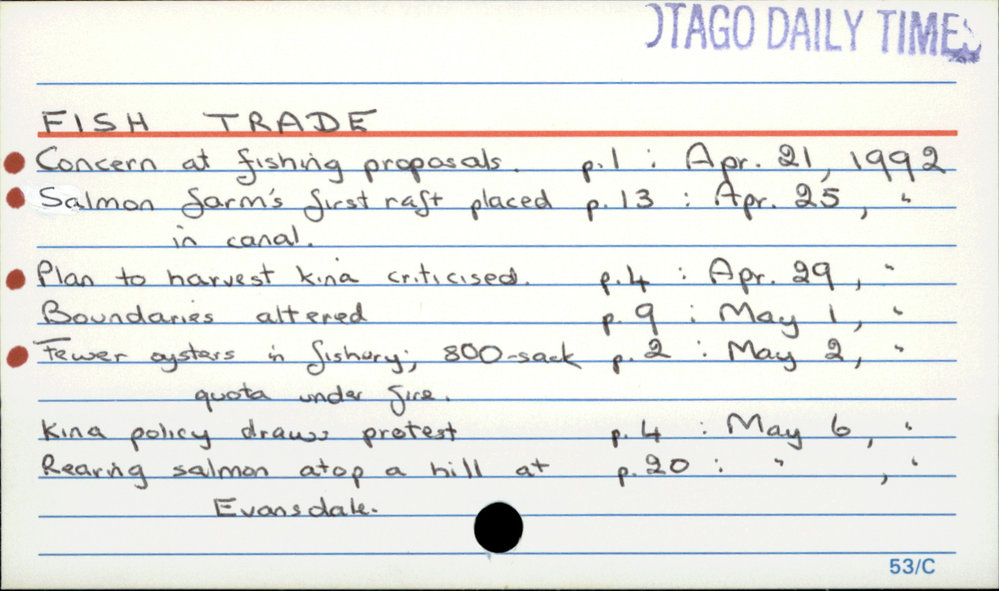 OTAGO DAILY TIMES
FISH TRADE
Concern at fishing proposals. p.1 : Apr. 21, 1992
Salmon farm's first raft placed p. 13 : Apr. 25, "
in canal.
Plan to harvest kina criticised. p.4 : Apr. 29, "
Boundaries altered p. 9 : May 1, "
Fewer oysters in fishery; 800-sack p. 2 : May 2, "
quota under fire.
Kina policy draws protest p. 4 : May 6, "
Rearing salmon atop a hill at p. 20 : " , "
Evansdale.
53/C